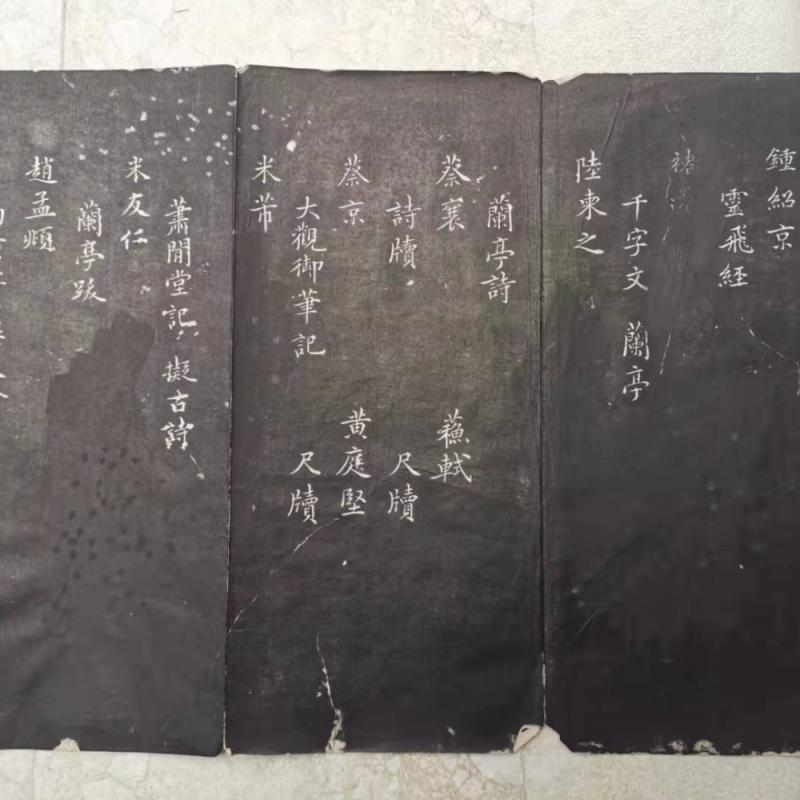 鍾紹京
靈飛經
褚
千字文 蘭亭
陸柬之
蘭亭詩
蔡襄 蘇軾
詩牘 尺牘
蔡京 黄庭堅
大觀御筆記 尺牘
米芾
蕭閒堂記 擬古詩
米友仁
蘭亭跋
趙孟頫